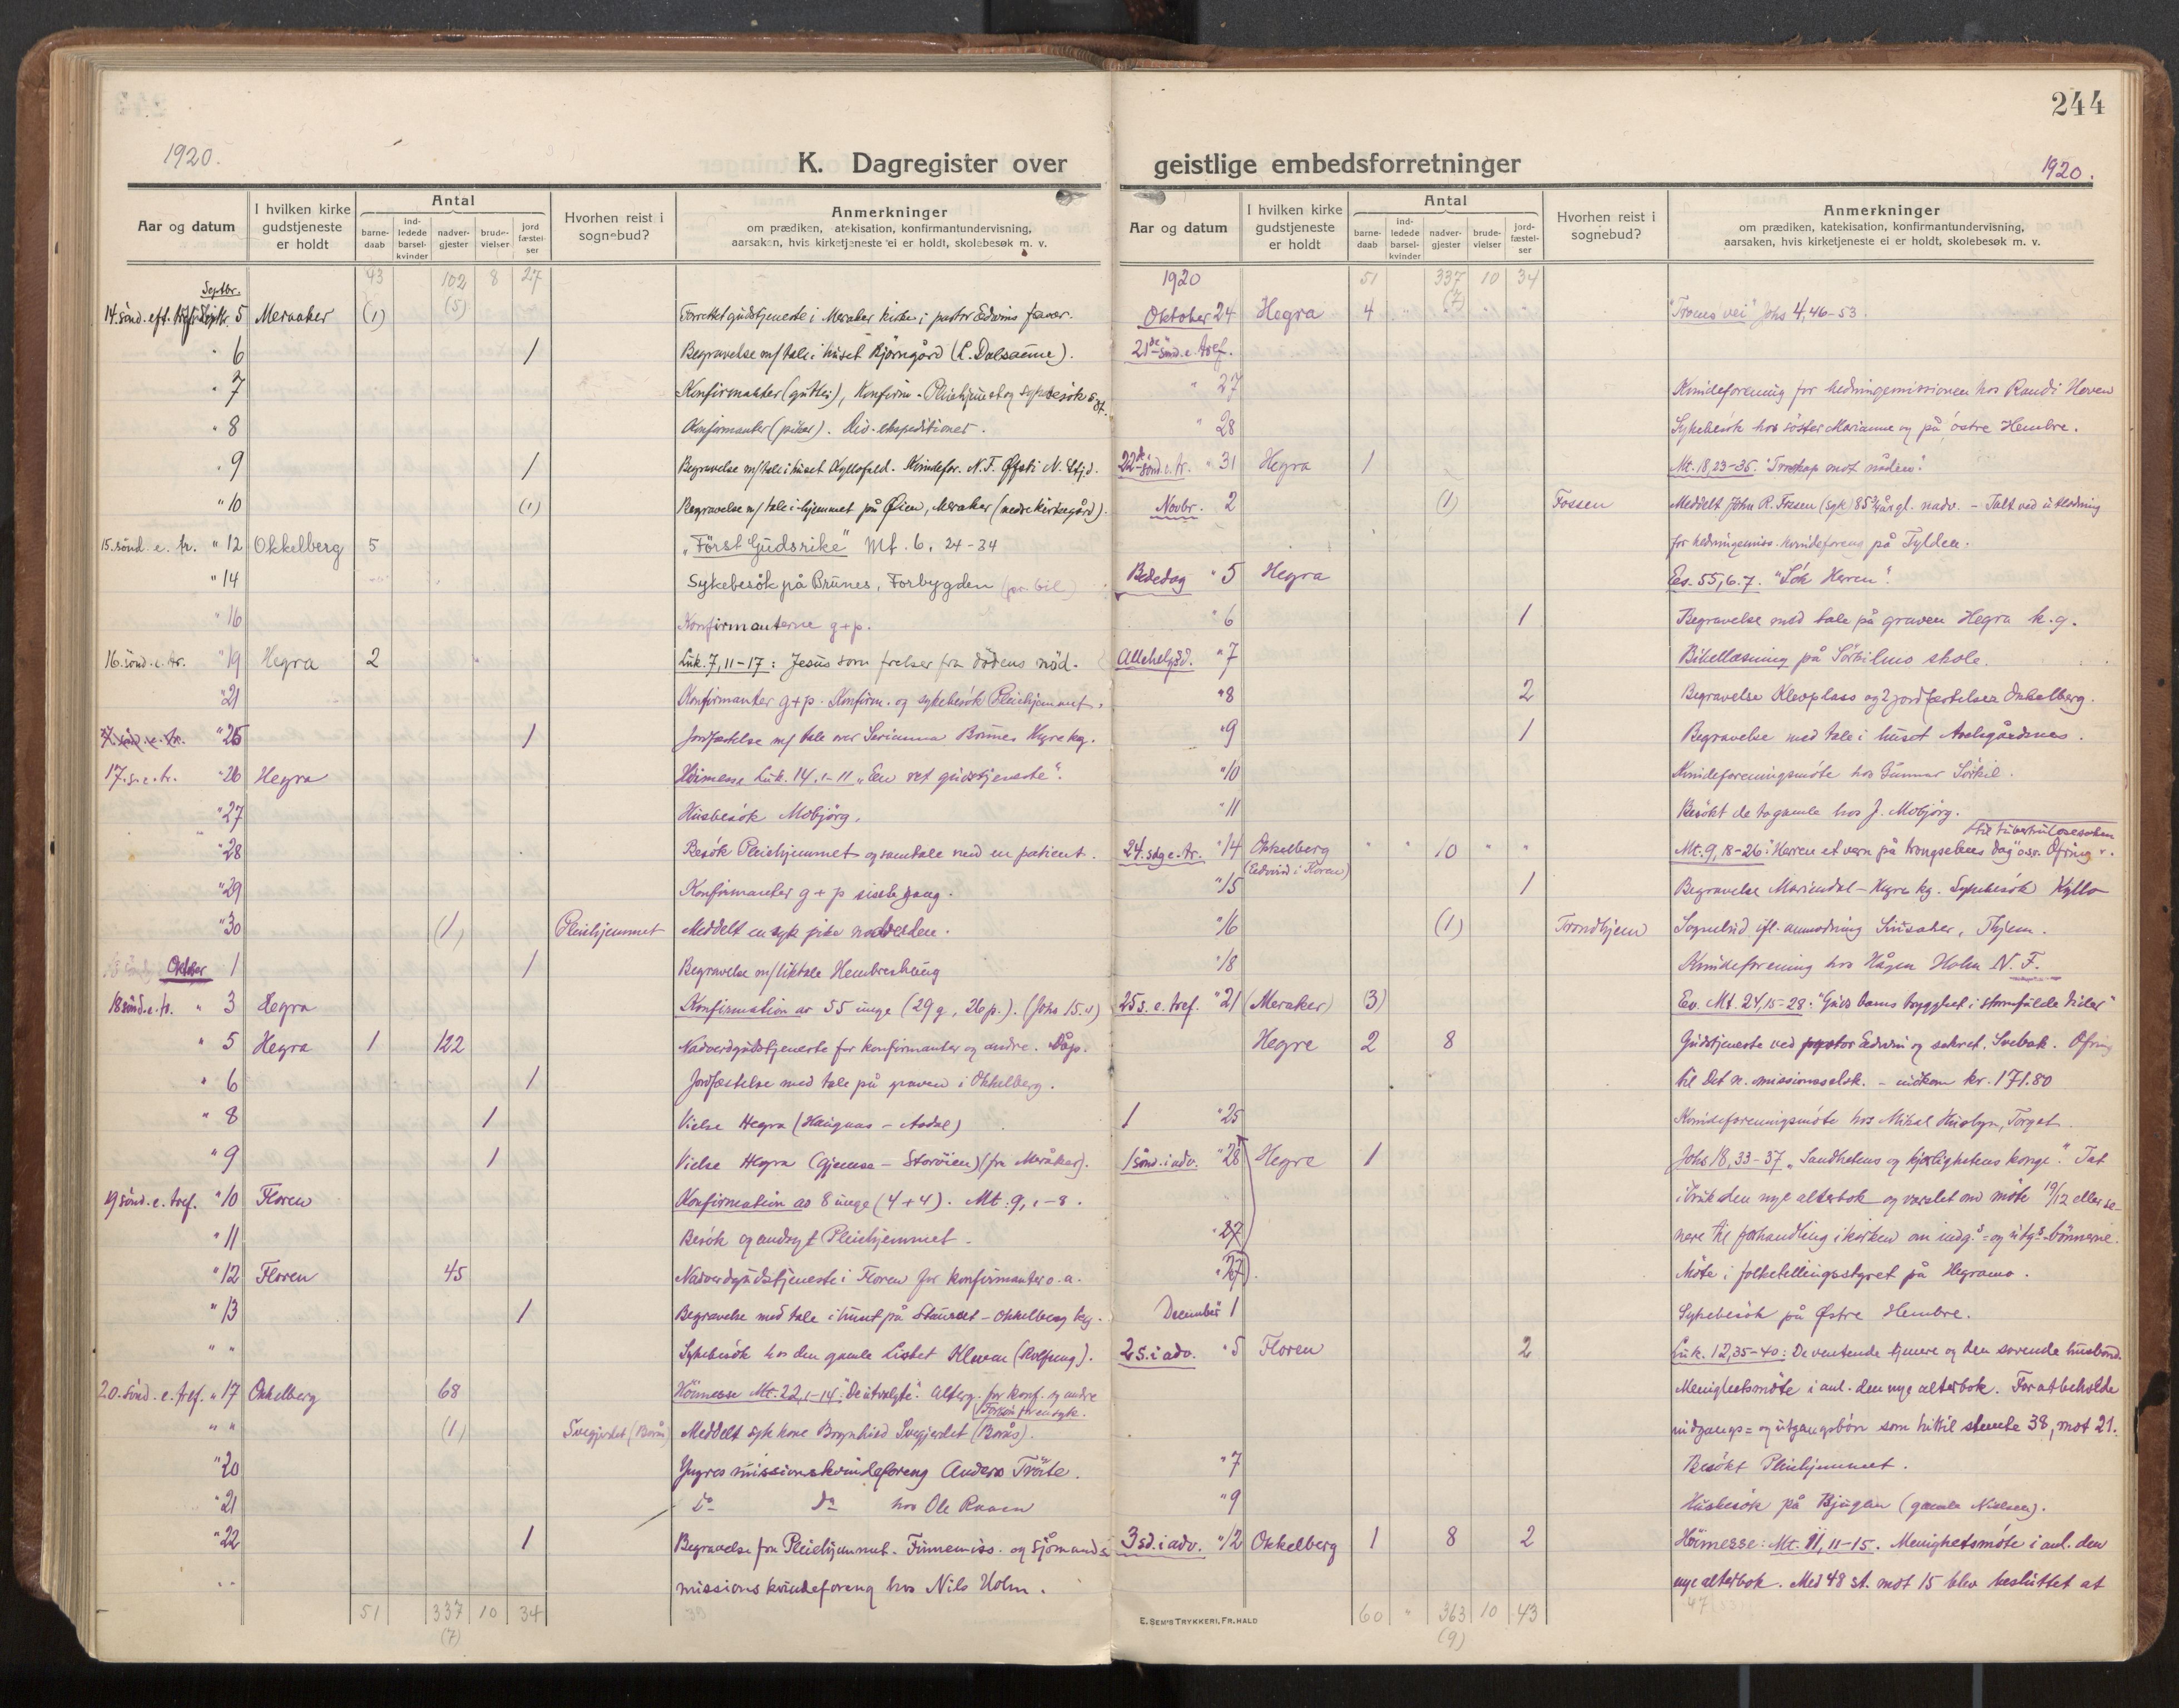 244
1920.
K. Dagregister over geistlige embedsforretninger
1920.
Aar og datum
I hvilken kirke gudstjeneste er holdt
Antal
barne-daab
ind-ledede barsel-kvinder
nadver-gjester
brude-vielser
jord fæstel-ser
Hvorhen reist i sognebud?
Anmerkninger
om prædiken, katekisation, konfirmantundervisning,
aarsaken, hvis kirketjeneste ei er holdt, skolebesøk m. v.
43 102 8 27
(5)
Septbr.
14. sönd. eft. 5 Meraaker (1) Forrettet gudstjeneste i Meraker kirke i pastor Edwins fravær.
" 6 1 Begravelse m/ tale i huset Bjørngård (L. Dalsaune).
" 7 Konfirmanter (gutter), Konfirm. Pleiehjemmet og sykebesök
" 8 Konfirmanter (piker). Div. ekspeditioner.
" 9 1 Begravelse m/ tale i huset Kyllofald. Kvindefor. N. F. Øfsti N. Stjd.
" 10 (1) Begravelse m/ tale i hjemmet på Øien, Meraker (nedre kirkegård).
15. sönd. e. tr. " 12 Okkelberg 5 "Först Guds rike" Mt. 6, 24-34
" 14 Sykebesök på Brunes, Forbygden (pr. bil)
" 16 Konfirmanterne g+p.
16. sönd. e. tr. " 19 Hegra 2 Luk. 7, 11-17: Jesus som frelser fra dödens nöd.
" 21 Konfirmanter g+p. Konfirm. og sykebesök Pleiehjemmet.
" 25 1 Jordfæstelse m/ tale over Serianna Brunes Hegra kg.
17. s. e. tr. " 26 Hegra Höimesse Luk. 14, 1-11 "En ret gudstjeneste".
" 27 Husbesök Mobjörg.
" 28 Besök Pleiehjemmet og samtale med en patient.
" 29 Konfirmanter g + p siste gang.
" 30 (1) Pleiehjemmet Meddelt en syk pike nadverden.
Oktober 1 1 Begravelse m/ liktale Hembreshaug
18 sönd. e. tr. " 3 Hegra Konfirmation av 55 unge (29 g, 26 p.). (Johs 15.4)
" 5 Hegra 1 122 Nadverdgudstjeneste for konfirmanter og andre. Dåp.
" 6 1 Jordfæstelse med tale på graven i Okkelberg.
" 8 1 Vielse Hegra (Haugnas - Aodal)
" 9 1 Vielse Hegra (Gjemse - Storöien) (fra Meråker).
19 sönd. e. tref. " 10 Floren Konfirmation av 8 unge (4+4). Mt. 9, 1-8.
" 11 Besök og andagt Pleiehjemmet.
" 12 Floren 45 Nadverdgudstjeneste i Floren for konfirmanter o. a.
" 13 1 Begravelse med tale i huset på - Okkelberg kg.
" " Sykebesök hos den gamle Lisbet Kleven (Rolfseng).
20. sönd. e. tref. " 17 Okkelberg 68 Höimesse Mt. 22, 1-14: "De utvalgte". Alterg. for konf. og andre
" " (1) Svegjerdet (Borås) Meddelt syk kone Brynhild Svegjerdet (Borås).
" 20 Yngres missionskvindeforeng Anders Tröite.
" 21 do do hos Ole Raaen
" 22 1 Begravelse fra Pleiehjemmet. Finnemiss. og sjömands-
" " missions kvindeforeng hos Nils Holm.
51 337 10 34
(7)
Aar og datum
I hvilken kirke gudstjeneste er holdt
Antal
barne-daab
ind-ledede barsel-kvinder
nadver-gjester
brude-vielser
jord-fæstel-ser
Hvorhen reist i sognebud?
Anmerkninger
om prædiken, katekisation, konfirmantundervisning,
aarsaken, hvis kirketjeneste ei er holdt, skolebesøk m. v.
1920 51 337 10 34
(7)
Oktober 24 Hegra 4 " " " " "Troens vei" Johs 4, 46-53.
21de sönd. e. tref.
" 27 Kvindeforening for hedningemissionen hos Randi Hoven
" 28 Sykebesök hos söster Marianne og på östre Hembre.
22de sönd. e. tr. " 31 Hegra 1 Mt. 18, 23-35. "Troskap mot nåden".
Novbr. 2 (1) Fossen Meddelt John R. Fossen (syk) 85 3/4 år gl. nadv. - Talt ved utlodning
for hedningemiss. kvindeforeng på Fylden.
Bededag " 5 Hegra Es. 55, 6. 7. "Sök Herren".
" 6 1 Begravelse med tale på graven Hegra k.g.
Allehelgsd. " 7 Bibellæsning på Sörkilmo skole.
" 8 2 Begravelse Kleoplass og 2 jordfæstelser Okkelberg.
" 9 1 Begravelse med tale i huset Avelsgårdsnes.
" 10 Kvindeforeningsmöte hos Gunnar Sörkil.
" 11 Besökt de to gamle hos J. Mobjörg.
til tuberkulosesaken
24. sdg e. tr. " 14 Okkelberg " " 10 " " Mt. 9, 18-26: "Herren et vern på trængselens dag" o.s.v. Ofring
(Edwin i Floren)
" 15 1 Begravelse Mariendal - Hegra kg. Sykebesök Kyllo
" 16 (1) Trondhjem Sognebud efl. anmodning , Thjem.
" 18 Kvindeforening hos Hågen Holm N. F.
25 s. e. tref. " 21 (Meraker) (3) Ev. Mt. 24, 15-28: "Guds barns tryghet i stormfulde tider"
Hegre 2 8 Gudstjeneste ved pastor Edwin og sekret. Svebak. Ofring
til Det n. missionsselsk. - indkom kr. 171.80
1 " 25 Kvindeforeningsmöte hos Mikal Husbyn, Torget.
1 sönd. i adv. " 28 Hegre 1 Johs 18, 33-37 "Sandhetens og kjærlighetens konge". Tat
i bruk den nye alterbok og varslet om möte 19/12 eller se-
" 27 nere til forhandling i kirken om indg.s- og utg.s-bönnerne.
" 27 Möte i folketellingsstyret på Hegramo.
December 1 Sykebesök på Östre Hembre.
2 s. i adv. " 5 Floren 2 Luk. 12, 35-40: De ventende tjenere og den sovende husbond.
Menighetsmöte i anl. den nye alterbok. For at beholde
indgangs- og utgangsbön som hittil stemte 38, mot 21.
" 7 Besökt Pleiehjemmet.
" 9 Husbesök på Bjugan (gamle Nielsen).
3 sd. i adv. " 12 Okkelberg 1 8 2 Höimesse: Mt. 11, 11-15. Menighetsmöte i anl. den
nye alterbok. Med 48 st. mot 15 blev besluttet at
60 " 363 10 43
(9)
E. SEM'S TRYKKERI, FR. HALD